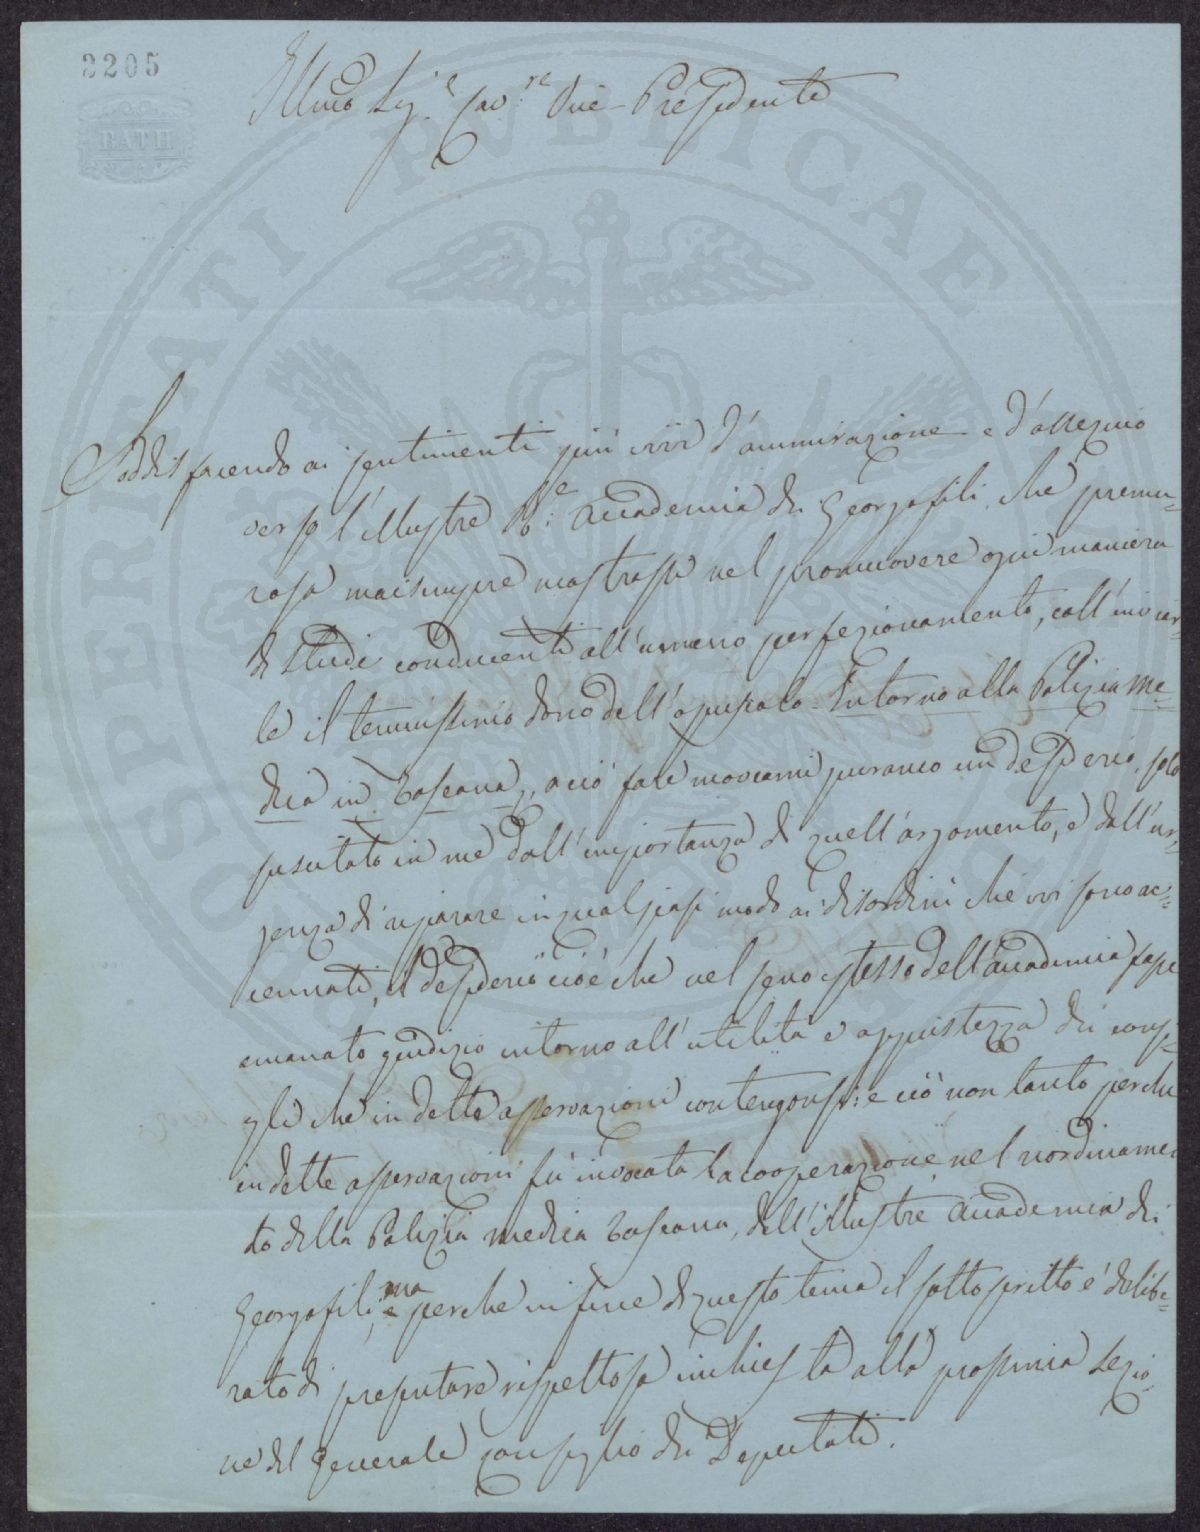 2205
BATH
PROSPERITATI PVBLICAE
Illmo Sig.e Cav.re Vice-Presidente
Soddisfacendo ai sentimenti più vivi d'ammirazione e d'ossequio
verso l'Illustre R.e Accademia dei Georgofili, che premu=
rosa maisempre mostrossi nel promuovere ogni maniera
di studi conducenti all'umano perfezionamento, coll'inviar=
le il tenuissimo dono dell'opuscolo Intorno alla Polizia Me=
dica in Toscana, a ciò fare movevami puranco un desiderio, solo
suscitato in me dall'importanza di quell'argomento, e dall'ur=
genza di riparare in qualsiasi modo ai disordini che ivi sono ac=
cennati, il desiderio cioè che nel seno istesso dell'Accademia fosse
emanato giudizio intorno all'utilità e aggiustezza dei consi=
gli che in dette osservazioni contengonsi: e ciò non tanto perchè
in dette osservazioni fù invocata la cooperazione nel riordinamen
to della Polizia medica Toscana, dell'illustre Accademia dei
Georgofili, ma perche in fine di questo tema il sottoscritto è delibe=
rato di presentare rispettosa inchiesta alla prossima Sezio=
ne del Generale Consiglio dei Deputati.